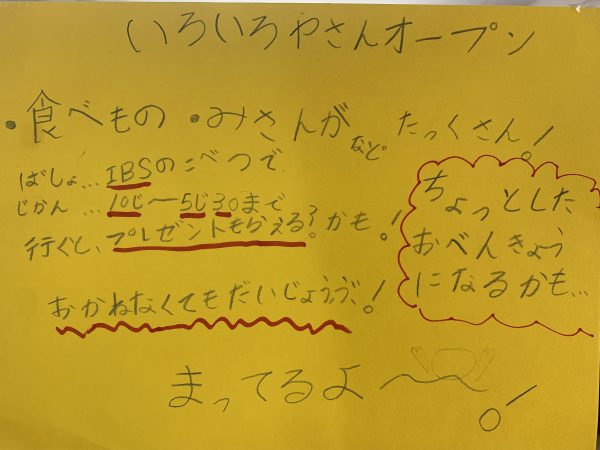 いろいろやさんオープン
・食べもの ・みさんが などたっくさん!
ばしょ...IBSのこべつで
じかん ...10じ〜5じ30まで
行くと、プレゼントもらえる?かも。!
おかねなくてもだいじょうぶ。!
ちょっとした
おべんきょう
になるかも...
まってるよ〜!